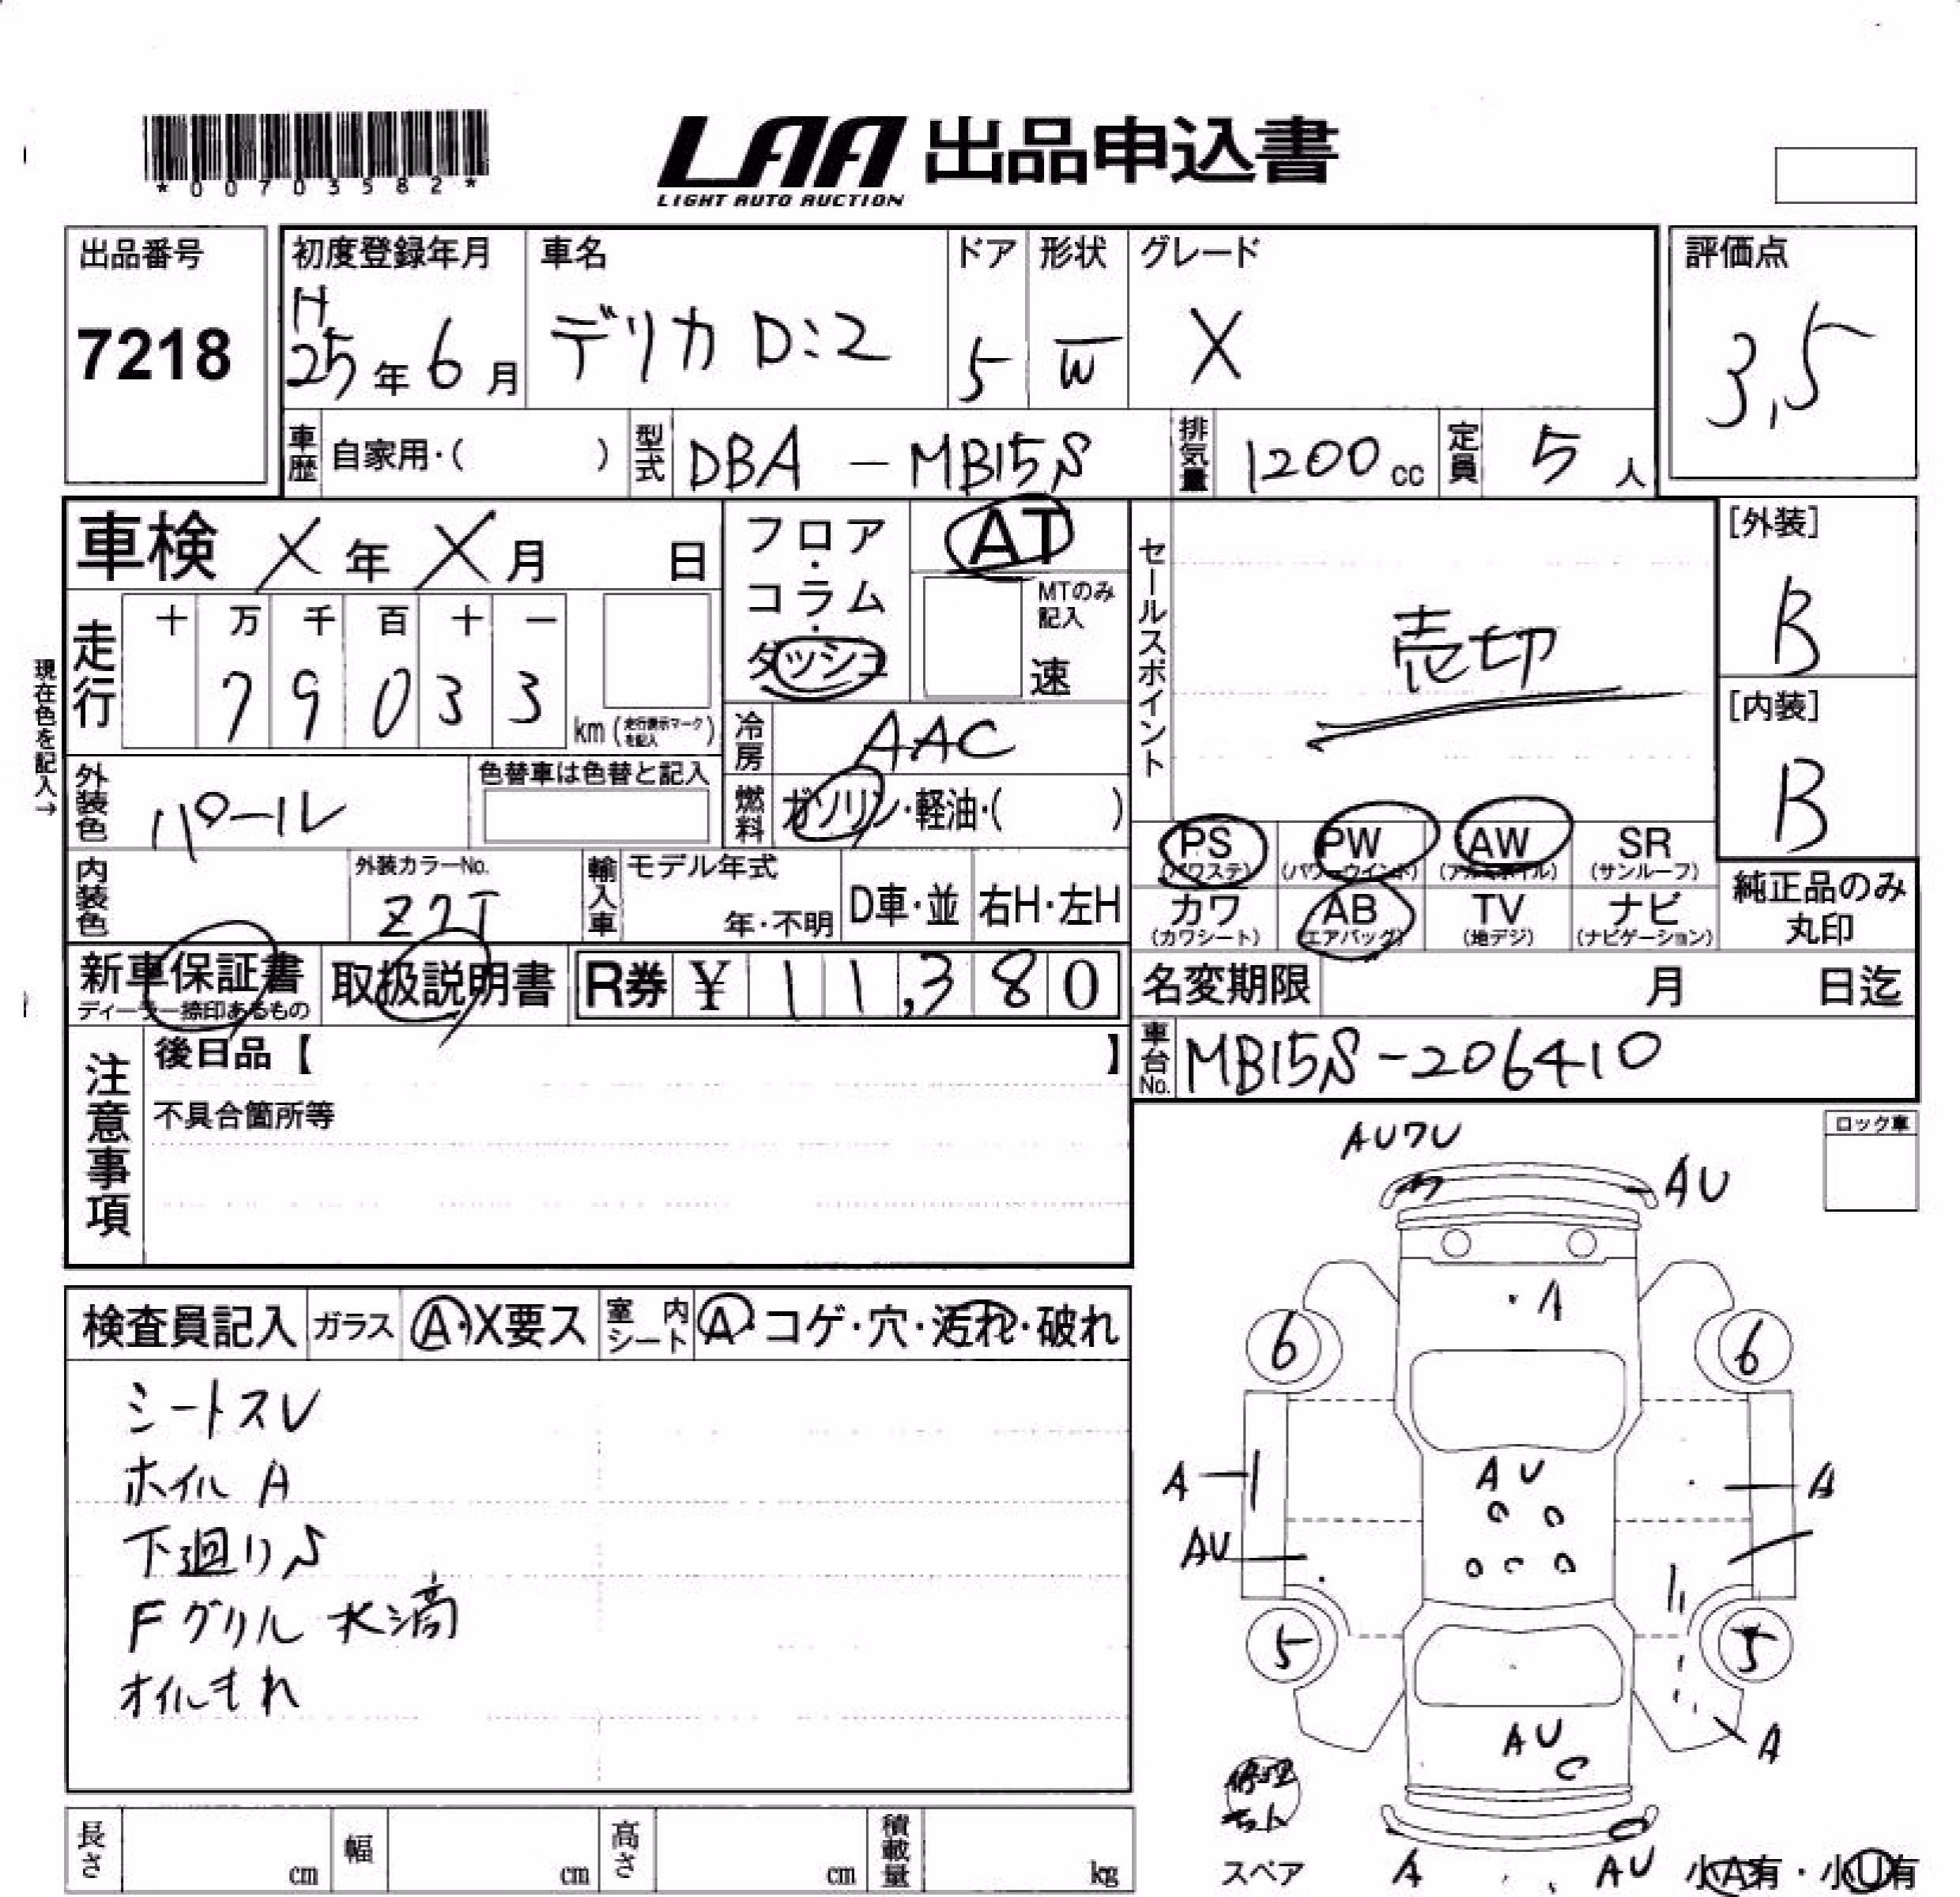 *00703582*
LAA 出品申込書
LIGHT AUTO AUCTION
出品番号
7218
初度登録年月
H
25年6月
車名
デリカ D:2
ドア
5
形状
W
グレード
X
評価点
3,5
車歴 自家用・( )
型式 DBA-MB15S
排気量 1200cc
定員 5人
車検 X年X月 日
フロア・コラム・ダッシュ
AT
MTのみ記入
速
セールスポイント
売切
[外装]
B
[内装]
B
現在色を記入→
走行
十 万 千 百 十 一
7 9 0 3 3
km(走行表示マークを記入)
冷房 AAC
外装色 パール
色替車は色替と記入
燃料 ガソリン・軽油・( )
PS (パワステ)
PW (パワーウインド)
AW (アルミホイル)
SR (サンルーフ)
カワ (カワシート)
AB (エアバッグ)
TV (地デジ)
ナビ (ナビゲーション)
純正品のみ丸印
内装色
外装カラーNo.
Z7T
輸入車
モデル年式
年・不明
D車・並
右H・左H
新車保証書
ディーラー捺印あるもの
取扱説明書
R券 ¥ 11,380
名変期限 月 日迄
車台No. MB15S-206410
注意事項
後日品【 】
不具合箇所等
ロック車
AUワU
AU
A
6 6
A AU A
AU
5 5
AU
A
スペア
A AU
小A有・小U有
検査員記入 ガラス A・X要ス 室内シート A・コゲ・穴・汚れ・破れ
シートスレ
ホイル A
下廻りS
Fグリル 水滴
オイルもれ
長さ cm
幅 cm
高さ cm
積載量 kg